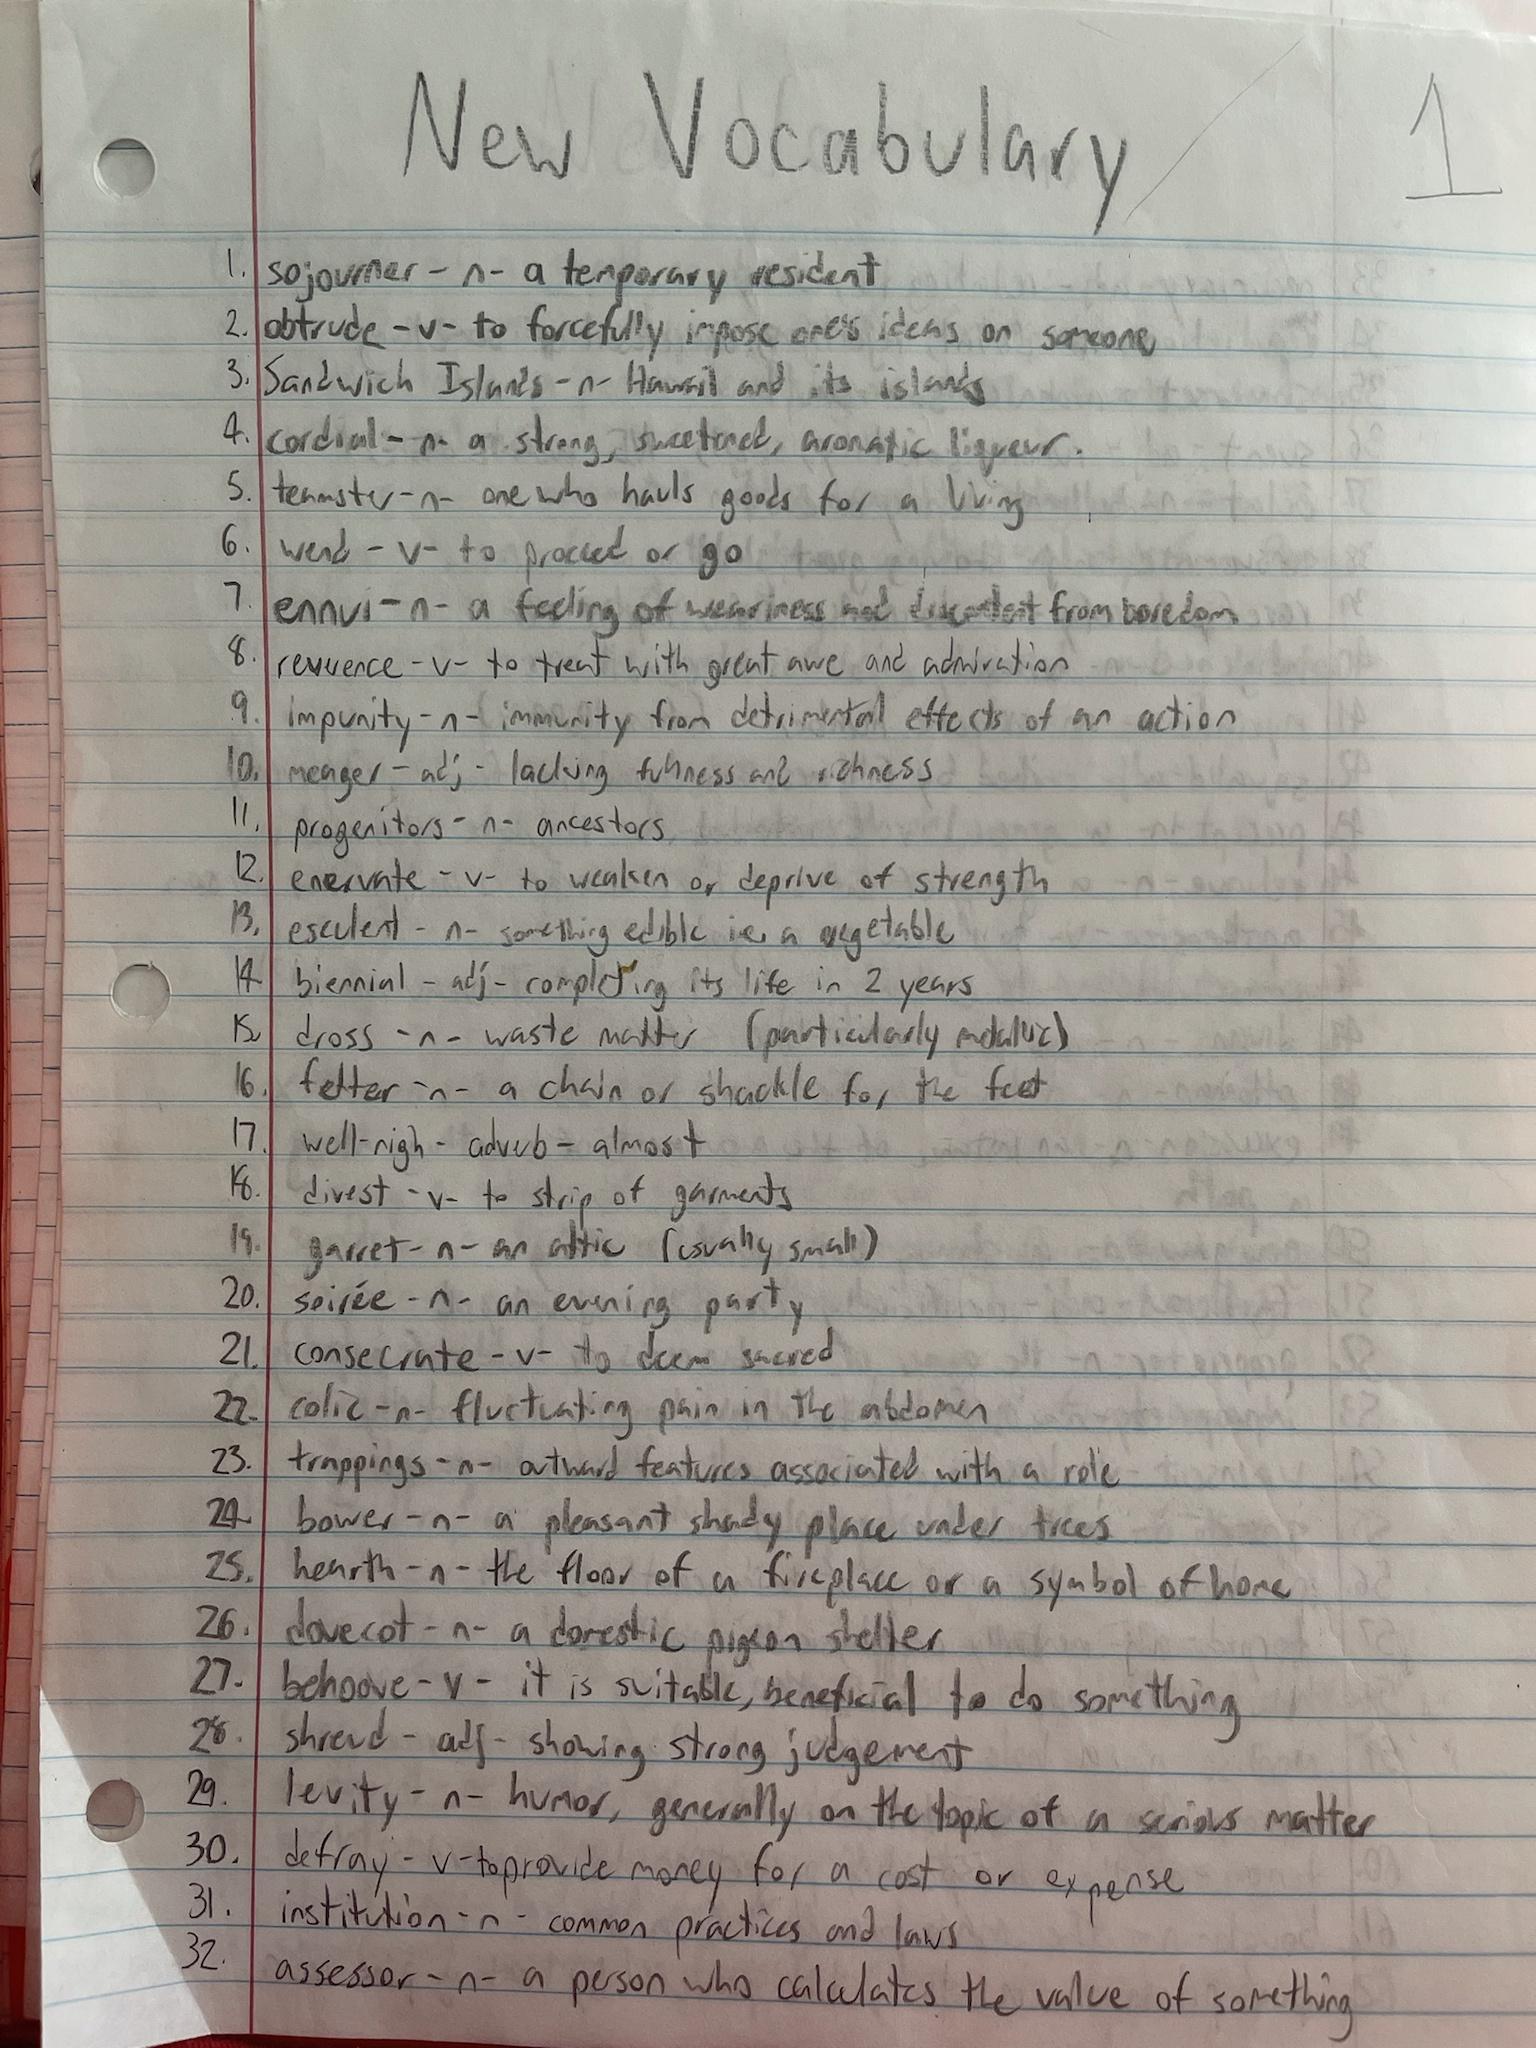 New Vocabulary
1
1. sojourner - n - a temporary resident
2. obtrude - v - to forcefully impose one's ideas on someone
3. Sandwich Islands - n - Hawaii and its islands
4. cordial - n - a strong, sweetened, aromatic liqueur.
5. teamster - n - one who hauls goods for a living
6. wend - v - to proceed or go
7. ennui - n - a feeling of weariness and discontent from boredom
8. reverence - v - to treat with great awe and admiration
9. impunity - n - immunity from detrimental effects of an action
10. meager - adj - lacking fullness and richness
11. progenitors - n - ancestors
12. enervate - v - to weaken or deprive of strength
13. esculent - n - something edible i.e. a vegetable
14. biennial - adj - completing its life in 2 years
15. dross - n - waste matter (particularly metallic)
16. fetter - n - a chain or shackle for the feet
17. well-nigh - adverb - almost
18. divest - v - to strip of garments
19. garret - n - an attic (usually small)
20. soirée - n - an evening party
21. consecrate - v - to deem sacred
22. colic - n - fluctuating pain in the abdomen
23. trappings - n - outward features associated with a role
24. bower - n - a pleasant shady place under trees
25. hearth - n - the floor of a fireplace or a symbol of home
26. dovecot - n - a domestic pigeon shelter
27. behoove - v - it is suitable, beneficial to do something
28. shrewd - adj - showing strong judgement
29. levity - n - humor, generally on the topic of a serious matter
30. defray - v - to provide money for a cost or expense
31. institution - n - common practices and laws
32. assessor - n - a person who calculates the value of something